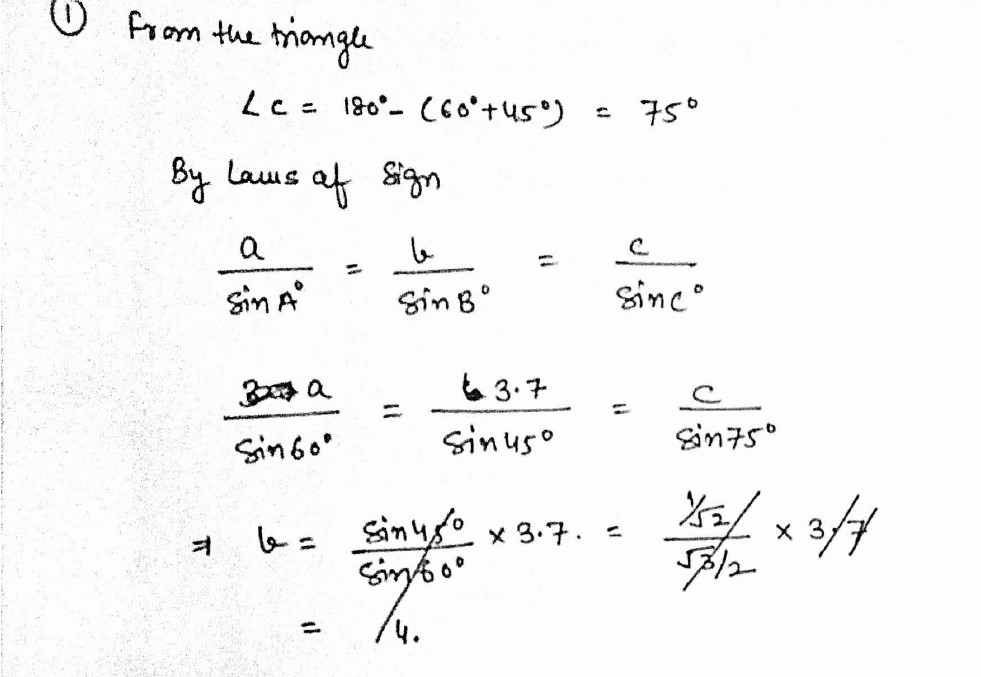 ① From the triangle
∠c = 180° - (60° + 45°) = 75°
By Laws of Sign
a / Sin A° = b / Sin B° = c / Sin c°
a / Sin 60° = 3.7 / Sin 45° = c / Sin 75°
⇒ b = Sin 45° / Sin 60° × 3.7. = 1/√2 / √3/2 × 3.7
= 14.